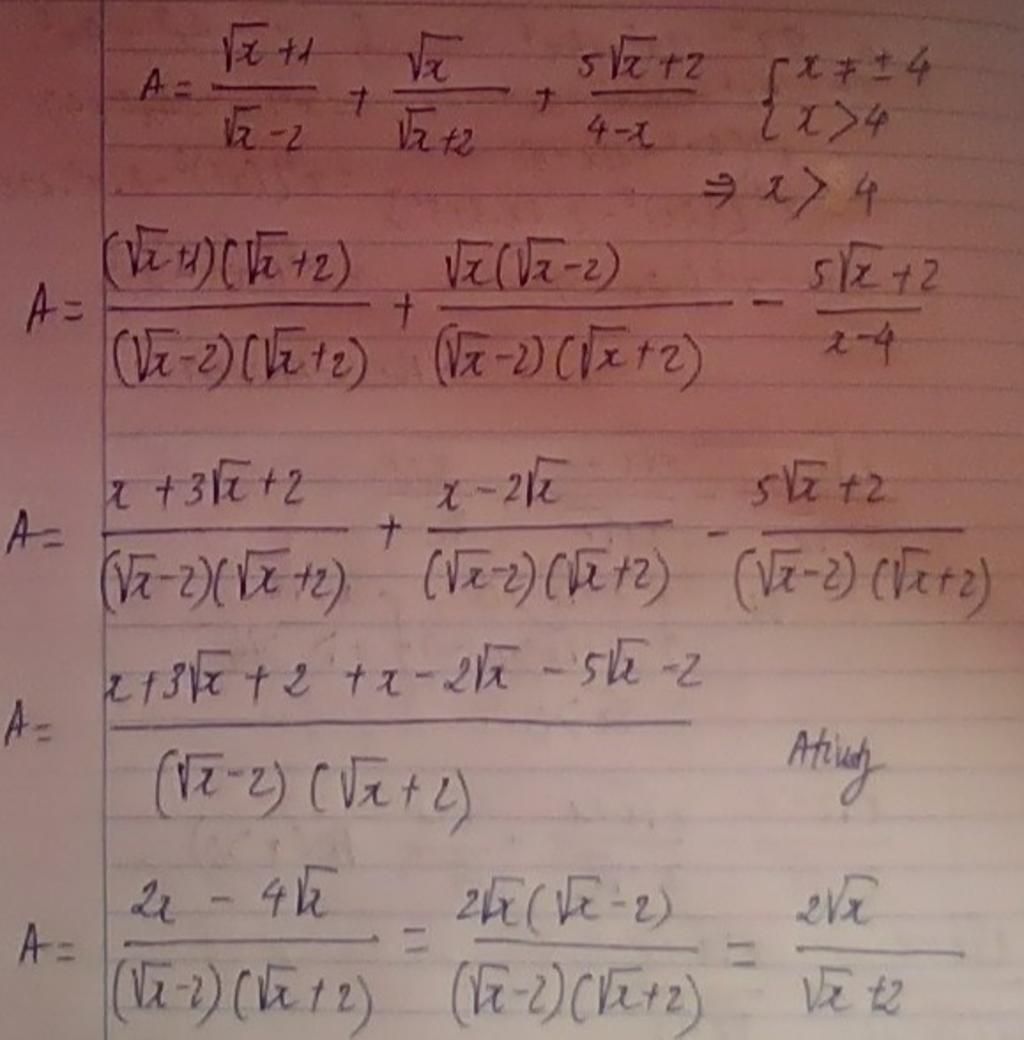 A = (√x + 1)/(√x - 2) + √x/(√x + 2) + (5√x + 2)/(4 - x) { x ≠ ± 4
x > 4
⇒ x > 4
A = ((√x + 1)(√x + 2))/((√x - 2)(√x + 2)) + (√x(√x - 2))/((√x - 2)(√x + 2)) - (5√x + 2)/(x - 4)
A = (x + 3√x + 2)/((√x - 2)(√x + 2)) + (x - 2√x)/((√x - 2)(√x + 2)) - (5√x + 2)/((√x - 2)(√x + 2))
A = (x + 3√x + 2 + x - 2√x - 5√x - 2)/((√x - 2)(√x + 2))
A = (2x - 4√x)/((√x - 2)(√x + 2)) = (2√x(√x - 2))/((√x - 2)(√x + 2)) = 2√x/(√x + 2)